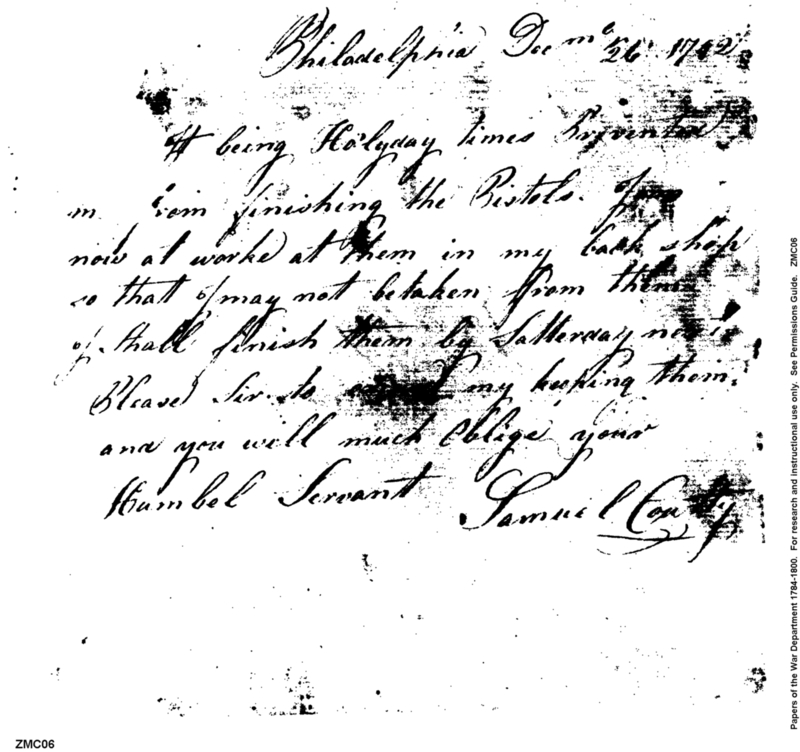 Philadelphia Decmc 26 1792
It being Holyday times Prevented
from finishing the Pistols. I am
now at worke at them in my back shop
so that I may not be taken from them
I shall finish them by Satterday next
Please Sir to my keeping them,
and you will much Oblige your
Humbel Servant Samuel Coutty
ZMC06
Papers of the War Department 1784-1800. For research and instructional use only. See Permissions Guide. ZMC06